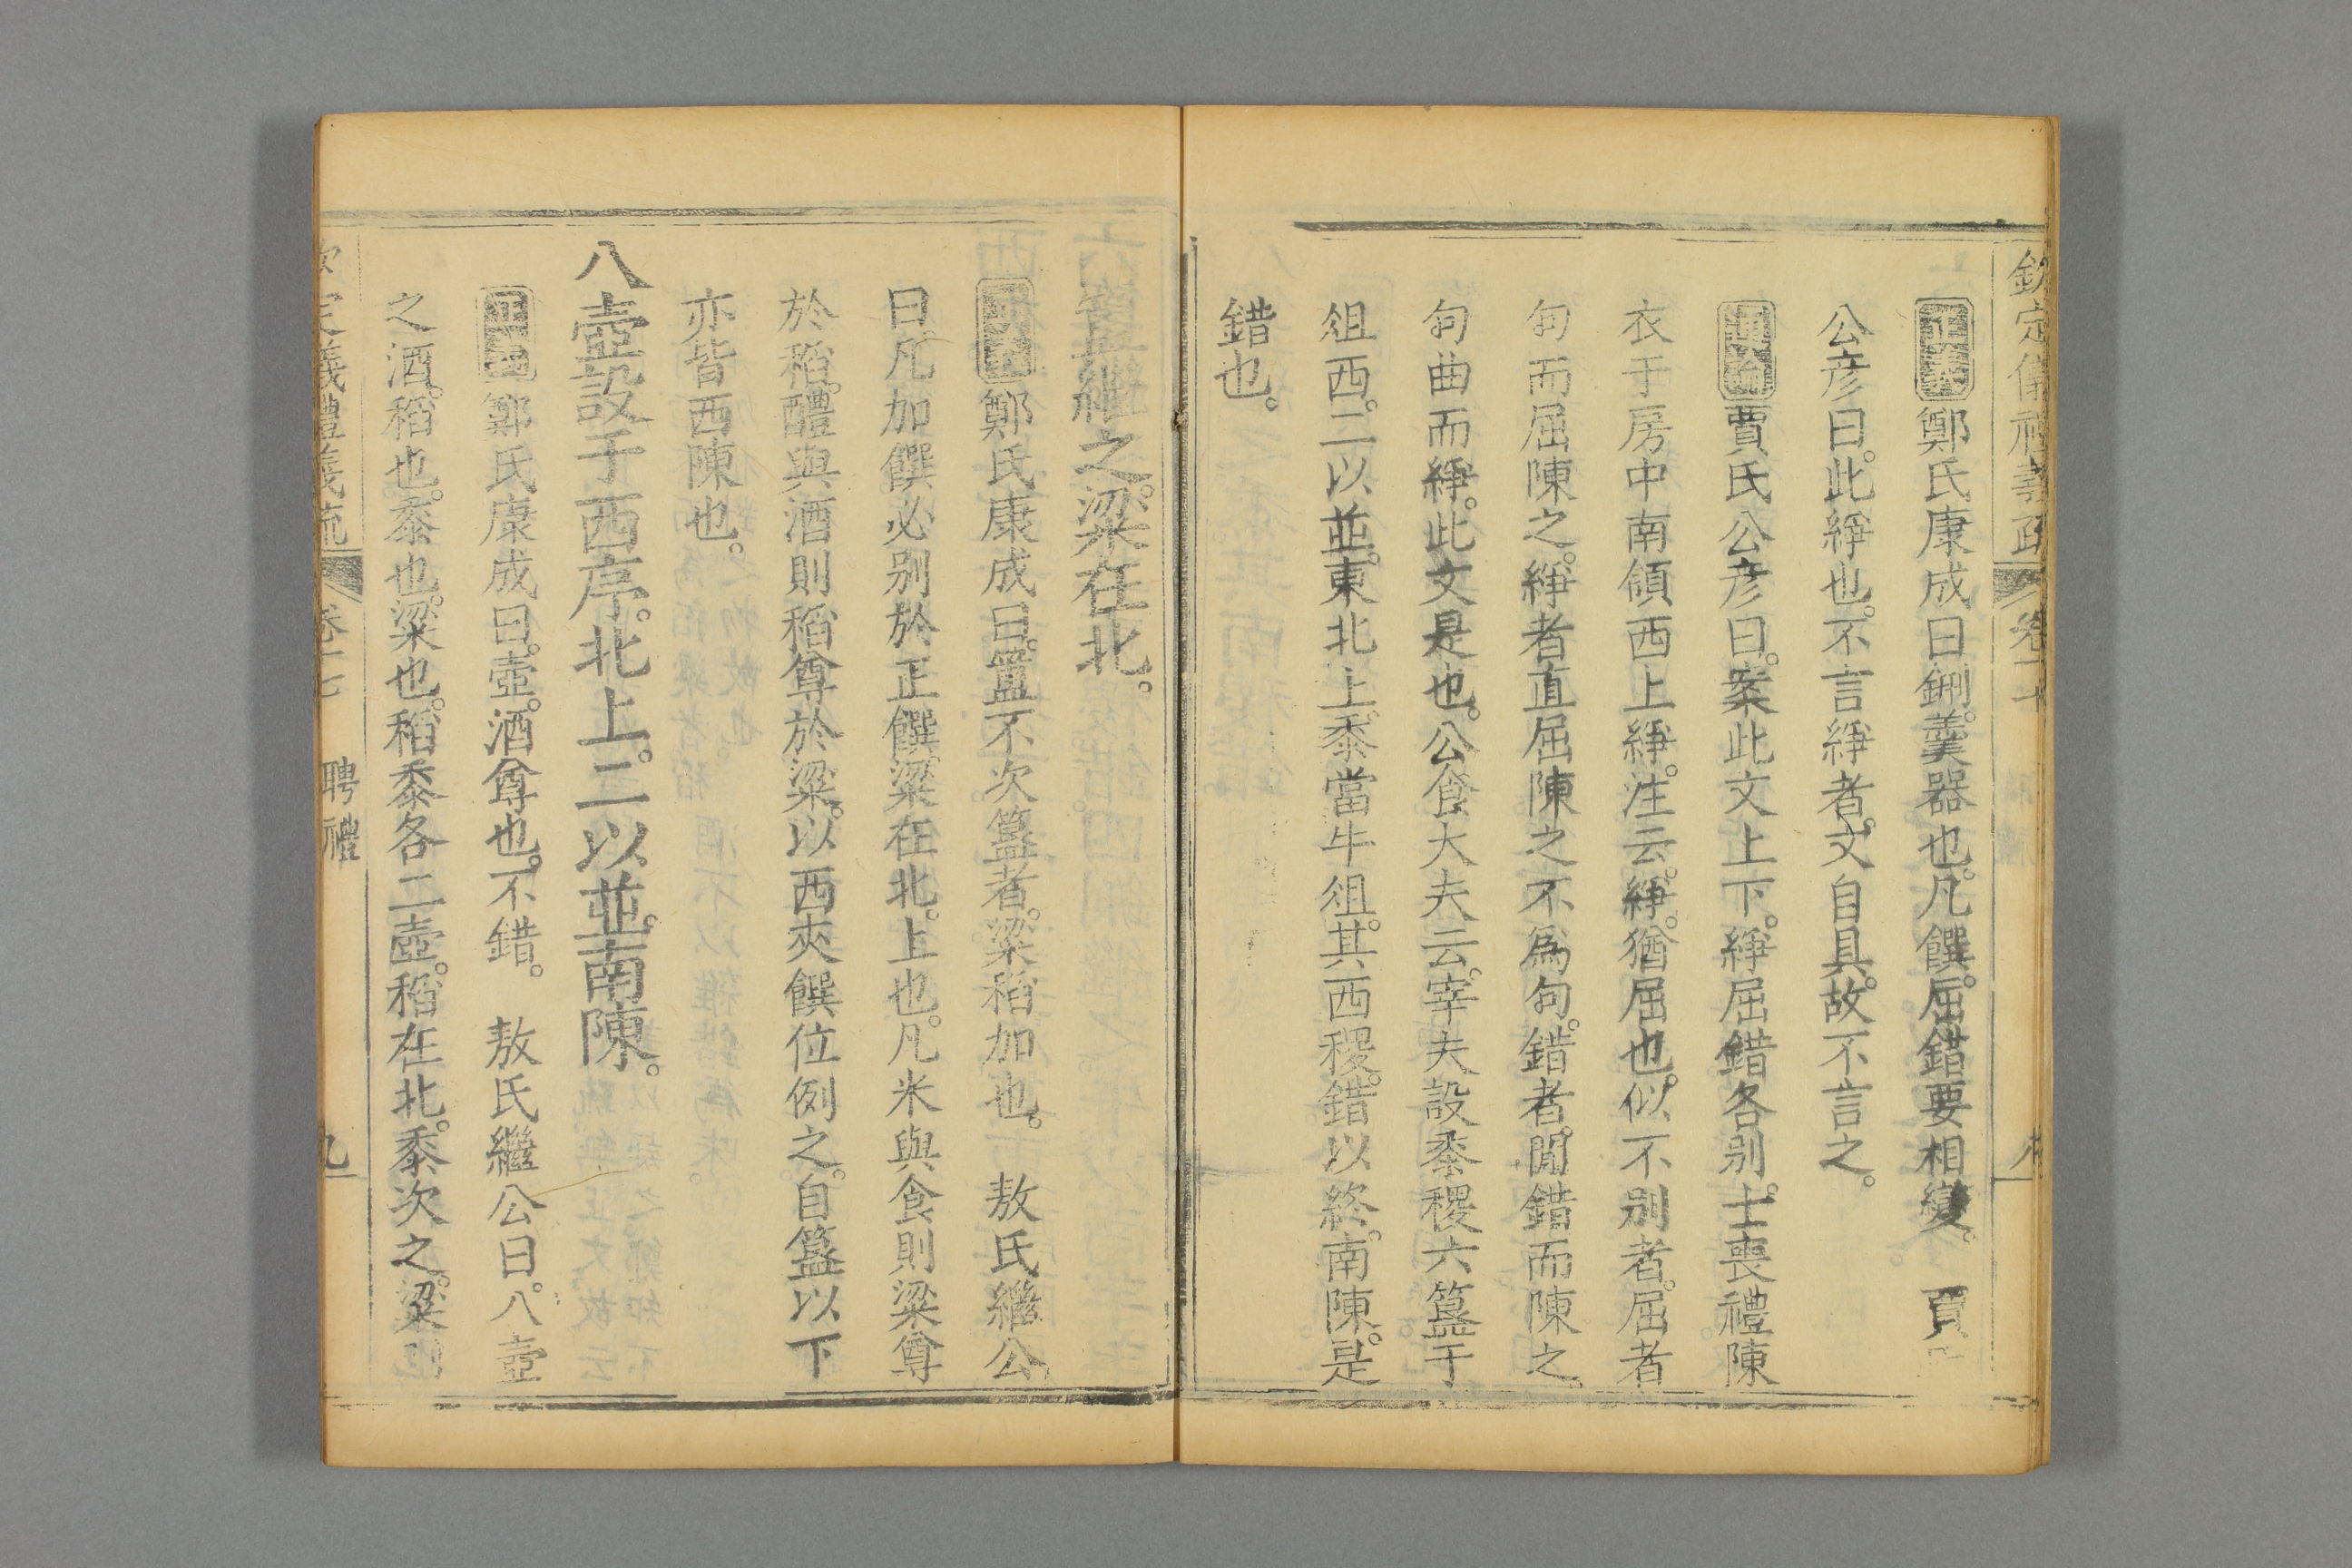 正義鄭氏康成曰鉶。羹器也。凡饌。屈錯要相變。 賈
公彦曰。此綪也。不言綪者。文自具。故不言之。
通論賈氏公彦曰。案此文上下。綪屈錯各别。士喪禮陳
衣于房中南領西上綪。注云。綪。猶屈也。似不别者。屈者
句而屈陳之。綪者直屈陳之不爲句。錯者。閒錯而陳之。
句曲而綪。此文是也。公食大夫云。宰夫設黍稷六簋于
俎西。二以並。東北上。黍當牛俎。其西稷。錯以終。南陳。是
錯也。
繼之。粱在北。
鄭氏康成曰。簠不次簋者。粱稻加也。 敖氏繼公
曰。凡加饌必别於正饌。粱在北。上也。凡米與食則粱尊
於稻。醴與酒則稻尊於粱。以西夾饌位例之。自簋以下
亦皆西陳也。
八壺設于西序。北上。二以並。南陳。
正義鄭氏康成曰。壺。酒尊也。不錯。 敖氏繼公曰。八壺
之酒。稻也。黍也。粱也。稻黍各二壺。稻在北。黍次之。粱
聘禮
九